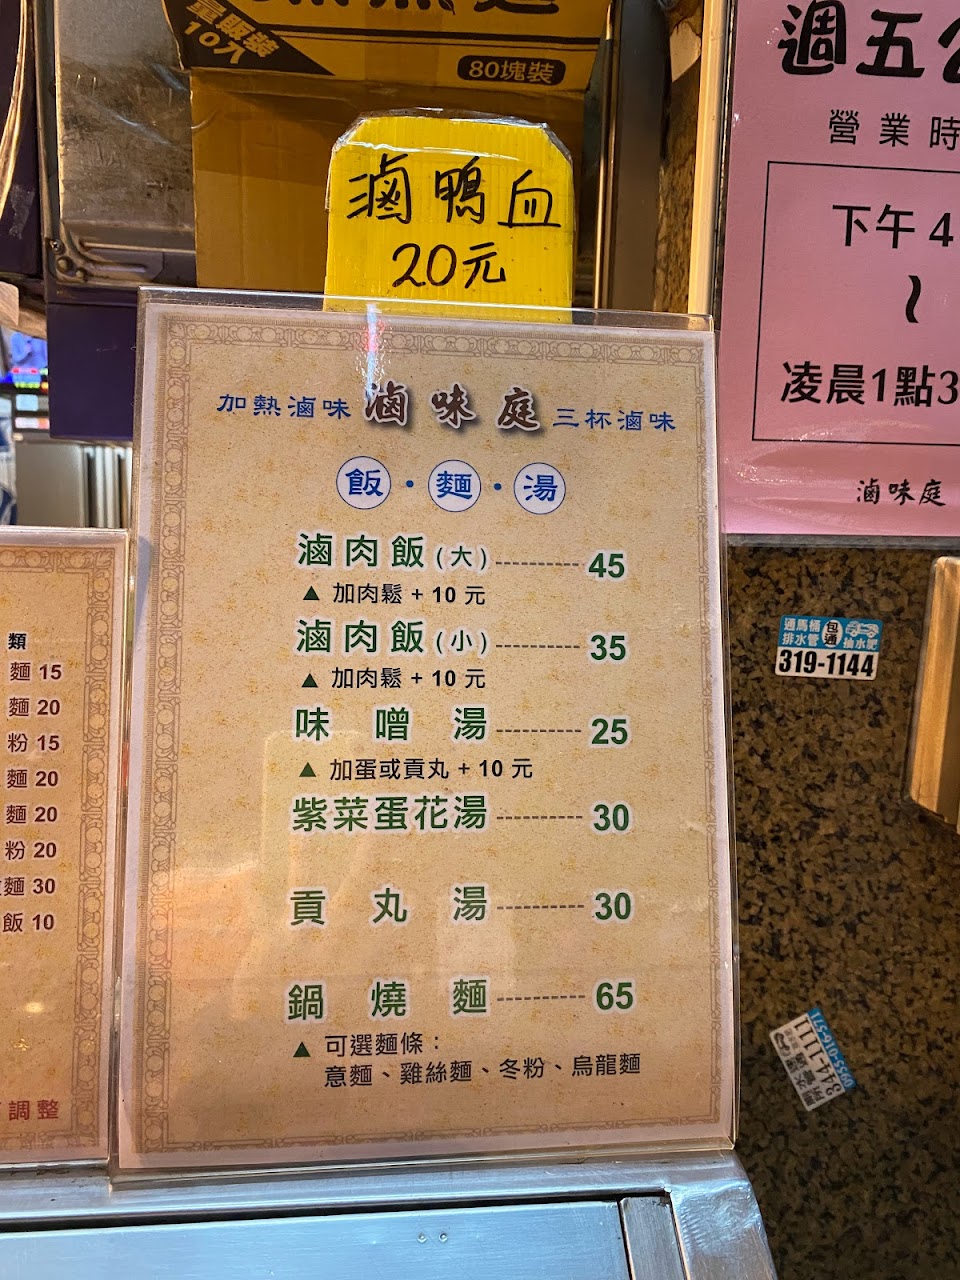 量販裝
10入
80塊裝
滷鴨血
20元
加熱滷味 滷味庭 三杯滷味
飯·麵·湯
滷肉飯(大)---------- 45
▲ 加肉鬆 + 10 元
滷肉飯(小)---------- 35
▲ 加肉鬆 + 10 元
味噌湯---------- 25
▲ 加蛋或貢丸 + 10 元
紫菜蛋花湯---------- 30
貢丸湯---------- 30
鍋燒麵---------- 65
▲ 可選麵條：
意麵、雞絲麵、冬粉、烏龍麵
類
麵 15
麵 20
粉 15
麵 20
麵 20
粉 20
麵 30
飯 10
調整
週五公
營業時
下午 4
~
凌晨1點3
滷味庭
通馬桶 包通
排水管 抽水肥
319-1144
344-1111